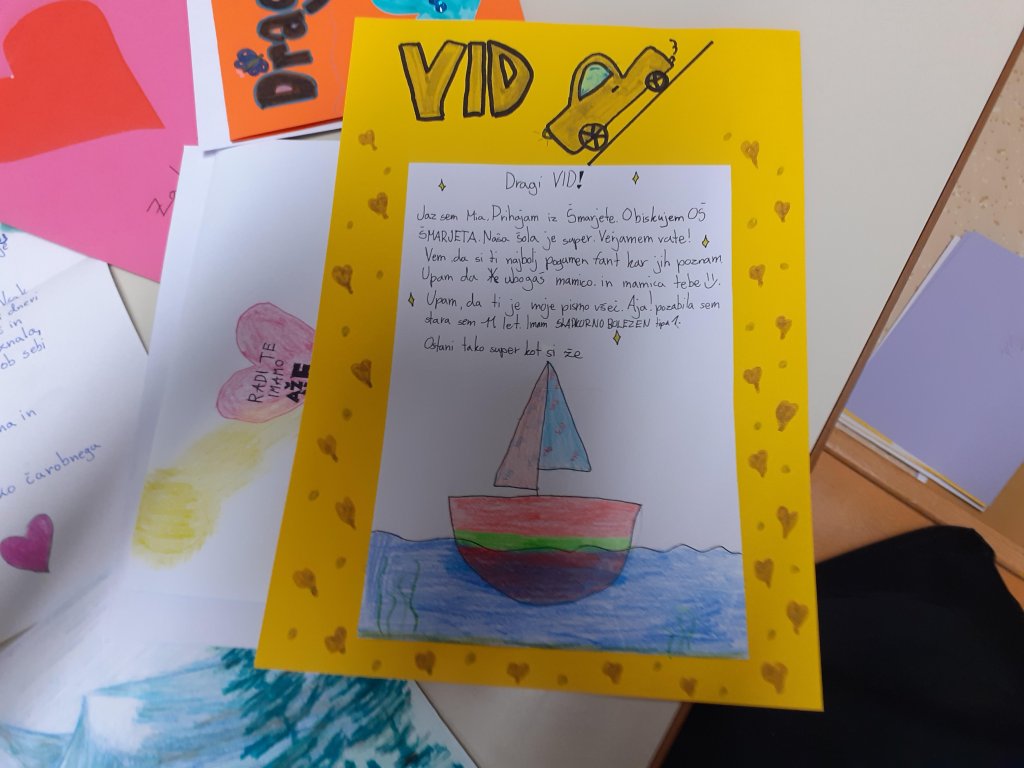 VID
Dragi VID!
Jaz sem Mia. Prihajam iz Šmarjete. Obiskujem OŠ
ŠMARJETA. Naša šola je super. Verjamem vate!
Vem da si ti najbolj pogumen fant kar jih poznam.
Upam da ubogaš mamico in mamica tebe
Upam, da ti je moje pismo všeč. Aja! pozabila sem
stara sem 11 let. Imam SLADKORNO BOLEZEN tipa 1.
Ostani tako super kot si že
Drag
RADI TE
IMAMO
in
ob sebi
na in
čarobnega